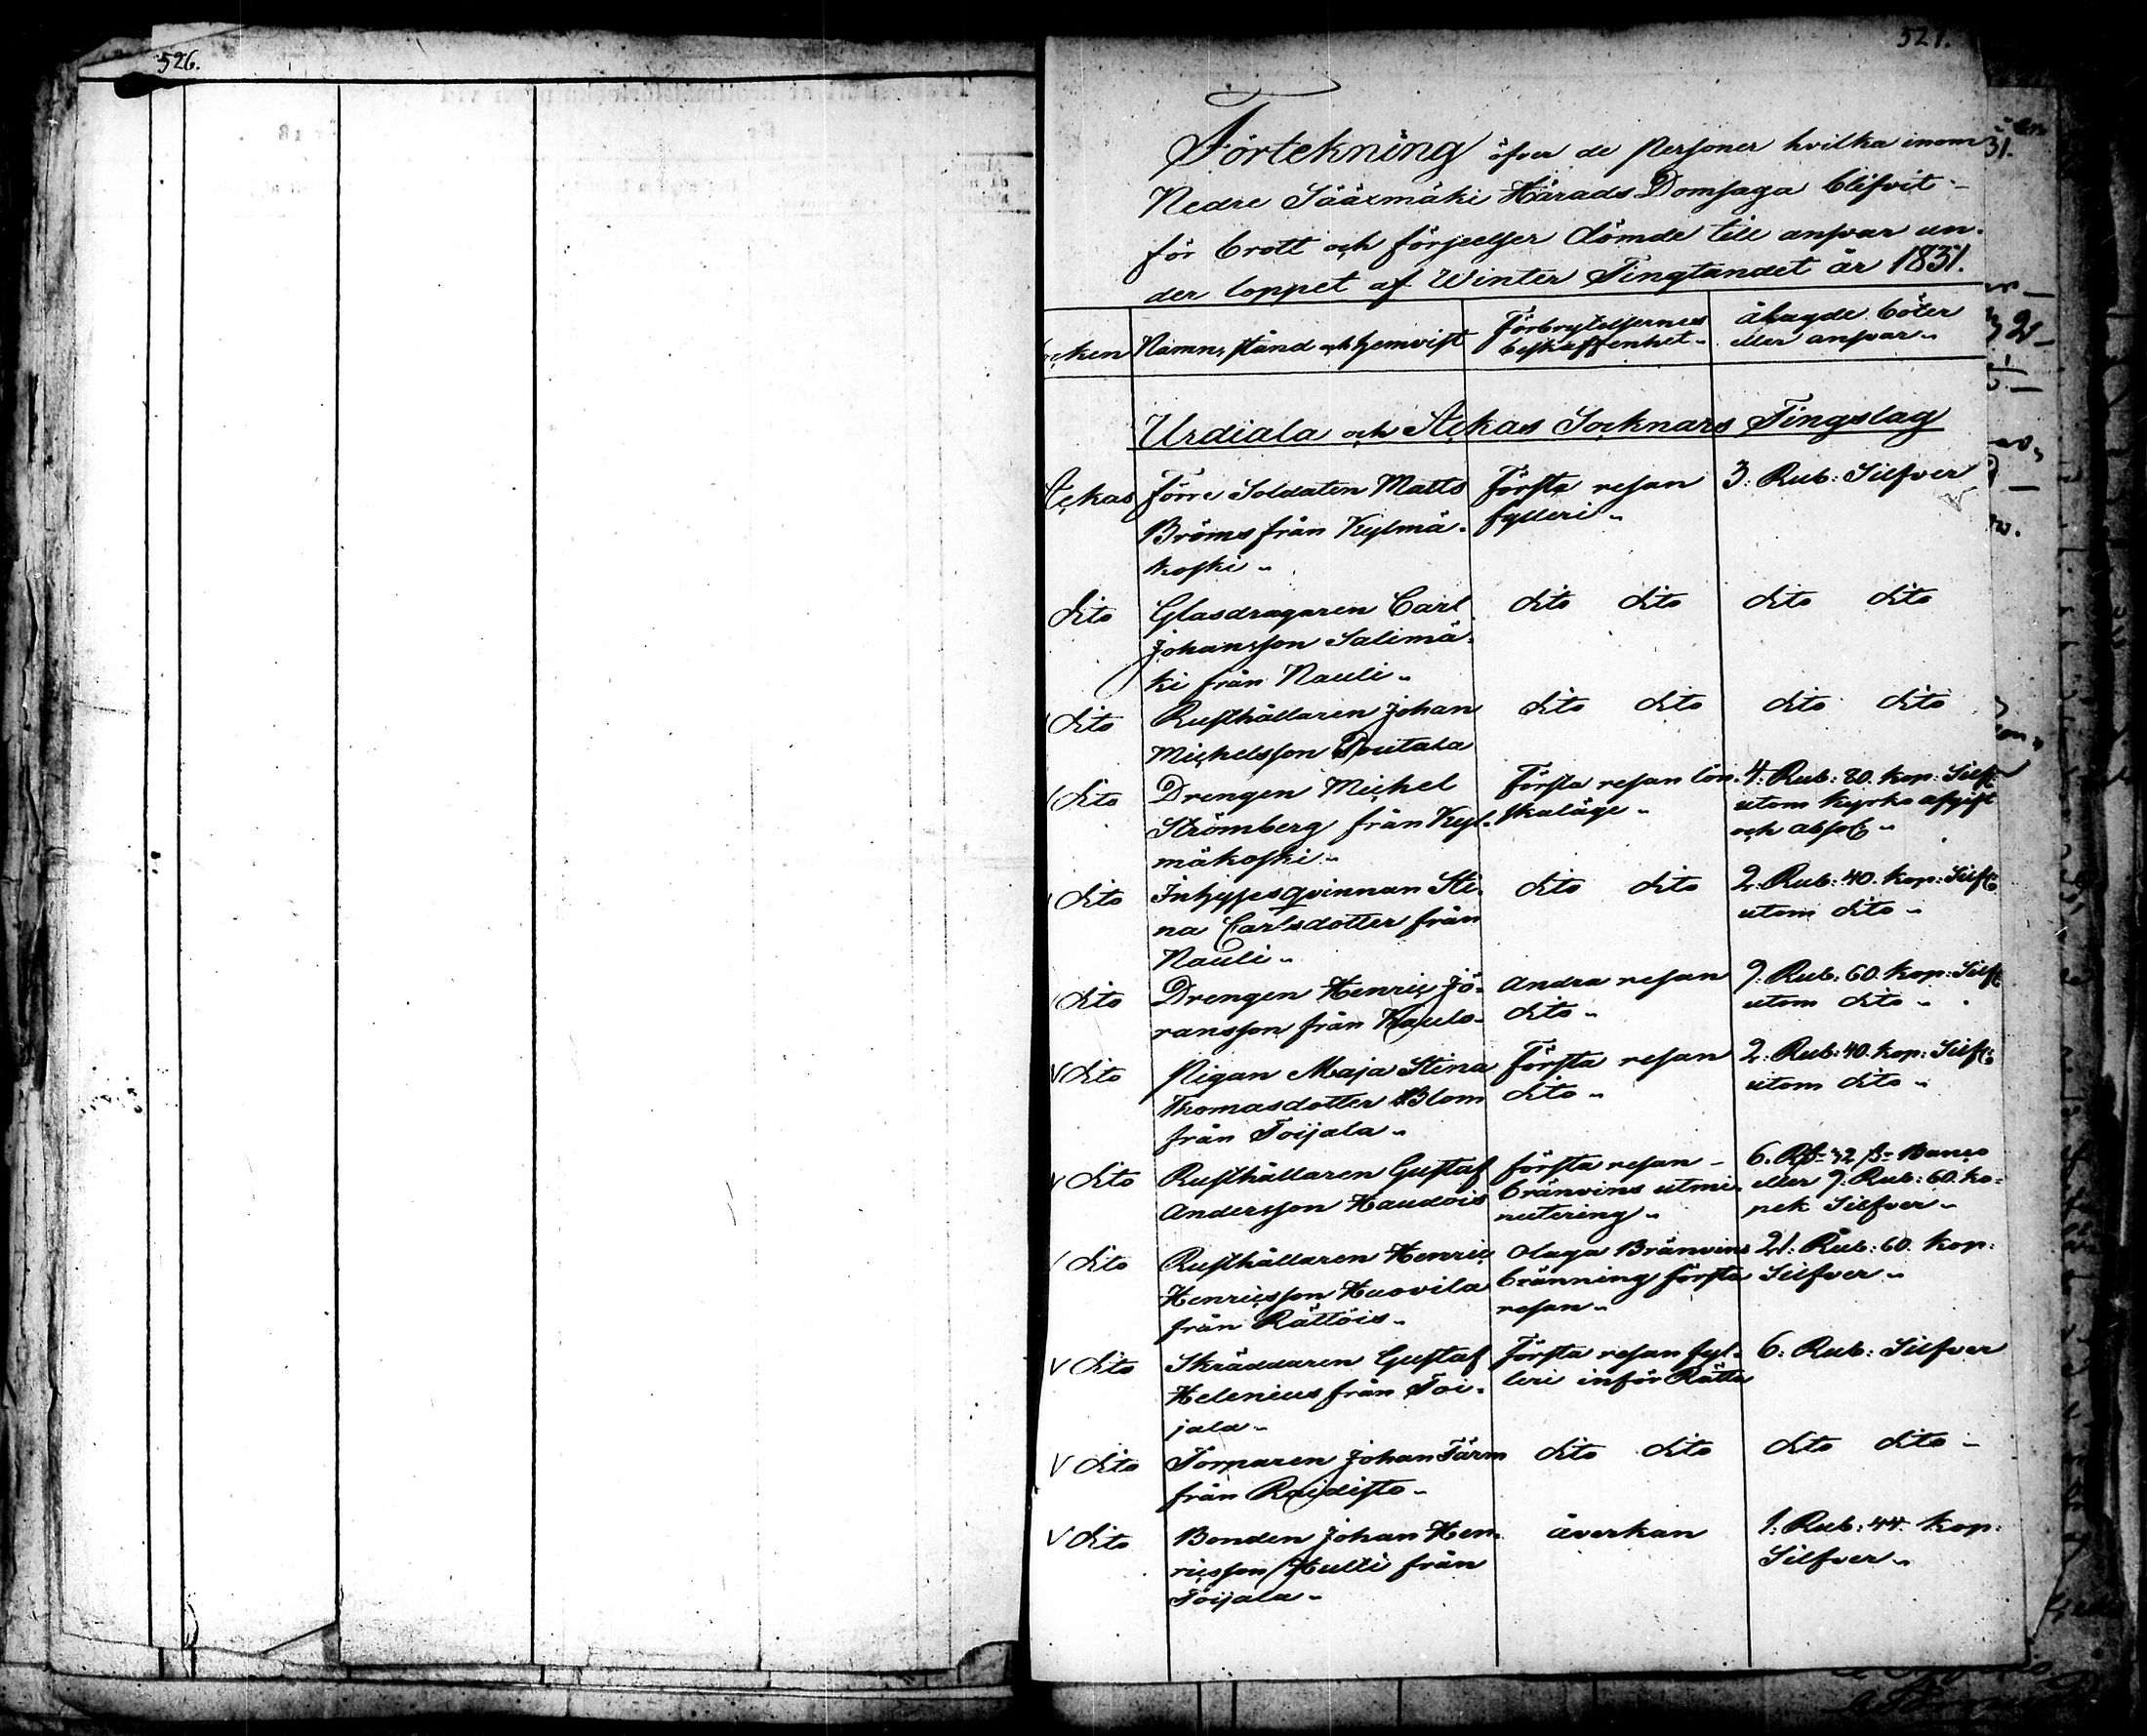 526.
527.
Förtekning öfver de Personer hvilka inom
Nedre Sääxmäki Härads Domsaga blifvit
för brott och förseelser dömde till answar un-
der loppet af Winter Tingtandet år 1831.
ocken Namn, stånd och hemvist Förbrytelsernes beskaffenhet ålagde böter eller answar
Urdiala och Ackas Socknars Tingslag
Ackas Förre Soldaten Matts Första resan 3: Rub: Silfver
Bröms från Kylmä- fylleri
koski
dito Glasdragaren Carl dito dito dito dito
Johansson Salimä-
ki från Nauli
dito Rusthållaren Johan dito dito dito dito
Michelsson Toutala
dito Drengen Michel Första resan lön- 4: Rub: 80. kop: Silf:
Strömberg från Kyl- skaläge utom kyrko afgift
mäkoski och absol:
dito Inhysesqvinnan Sti- dito dito 2: Rub: 40. kop: Silf:
na Carlsdotter från utom dito
Nauli
dito Drengen Henric Jö- Andra resan 9: Rub: 60. kop: Silf:
ransson från Kaulo- dito utom dito
V dito Pigan Maja Stina Första resan 2: Rub: 40. kop: Silf:
Thomasdotter Blom dito utom dito
från Toijala
V dito Rusthållaren Gustaf första resan 6. Rß 32 ß Banco
Andersson Haudois bränvins utmi- eller 9: Rub: 60. ko-
nutering pek Silfver
V dito Rusthållaren Henric Olaga Bränvins 21: Rub: 60. kop:
Henricsson Huovila bränning första Silfver
från Rättöis resan
V dito Skräddaren Gustaf Första resan fyl- 6: Rub: Silfver
Helenius från Toi- leri inför Rätta
jala
V dito Torparen Johan Färm dito dito dito dito
från Roidisto
V dito Bonden Johan Hen- åverkan 1: Rub: 44. kop:
ricsson Hulli från Silfver
Toijala